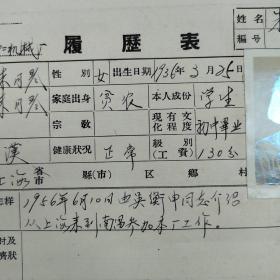 姓名 朱
编号
机械厂
履歷表
朱月琴 性别 女 出生日期 1936年3月25日
朱月琴 家庭出身 贫农 本人成份 学生
宗教 现有文化程度 初中毕业
漢 健康狀况 正常 级别(工资) 130分
上海 省市 縣(市) 區 鄉村
怎样 1956年6月10日由吴衡中同志介绍
从上海来到南昌参加本厂工作。
村及
濟狀